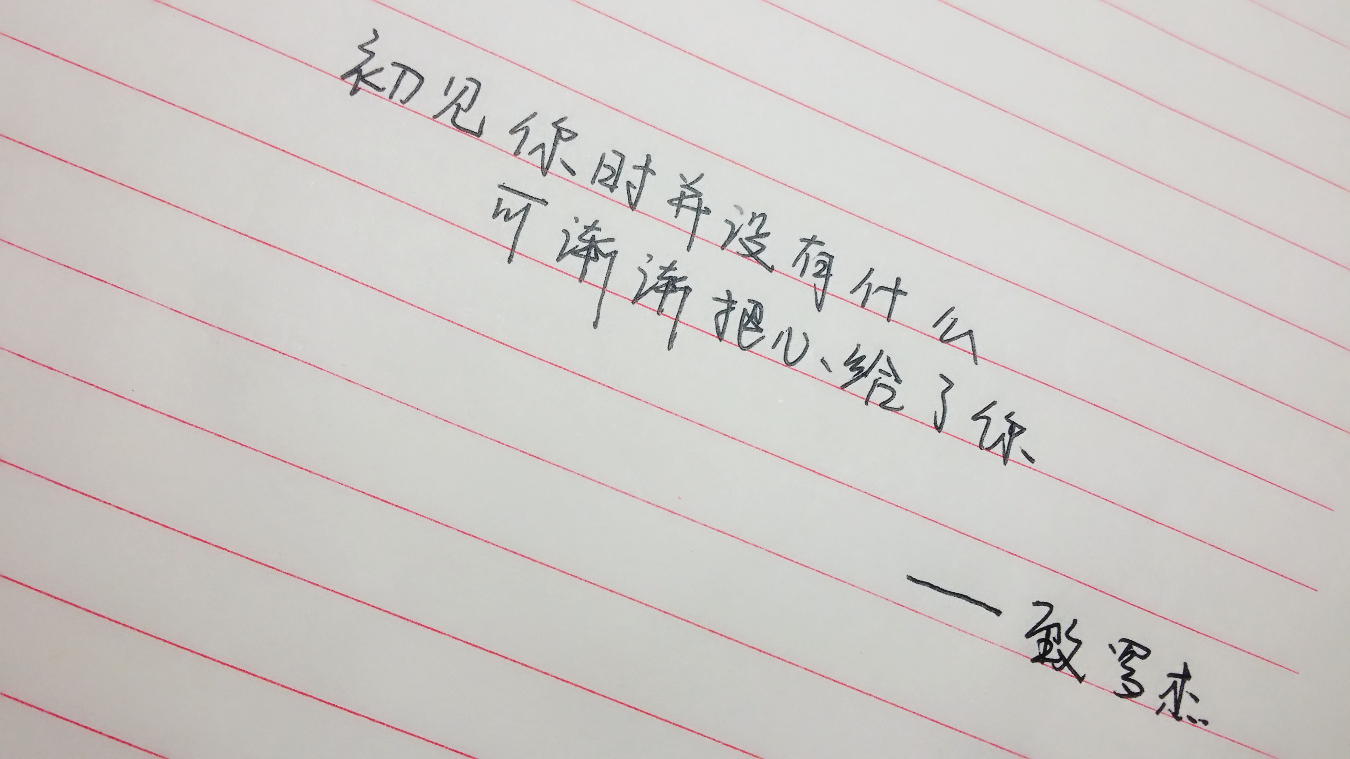 初见你时并没有什么
可渐渐把心给了你
——致罗杰